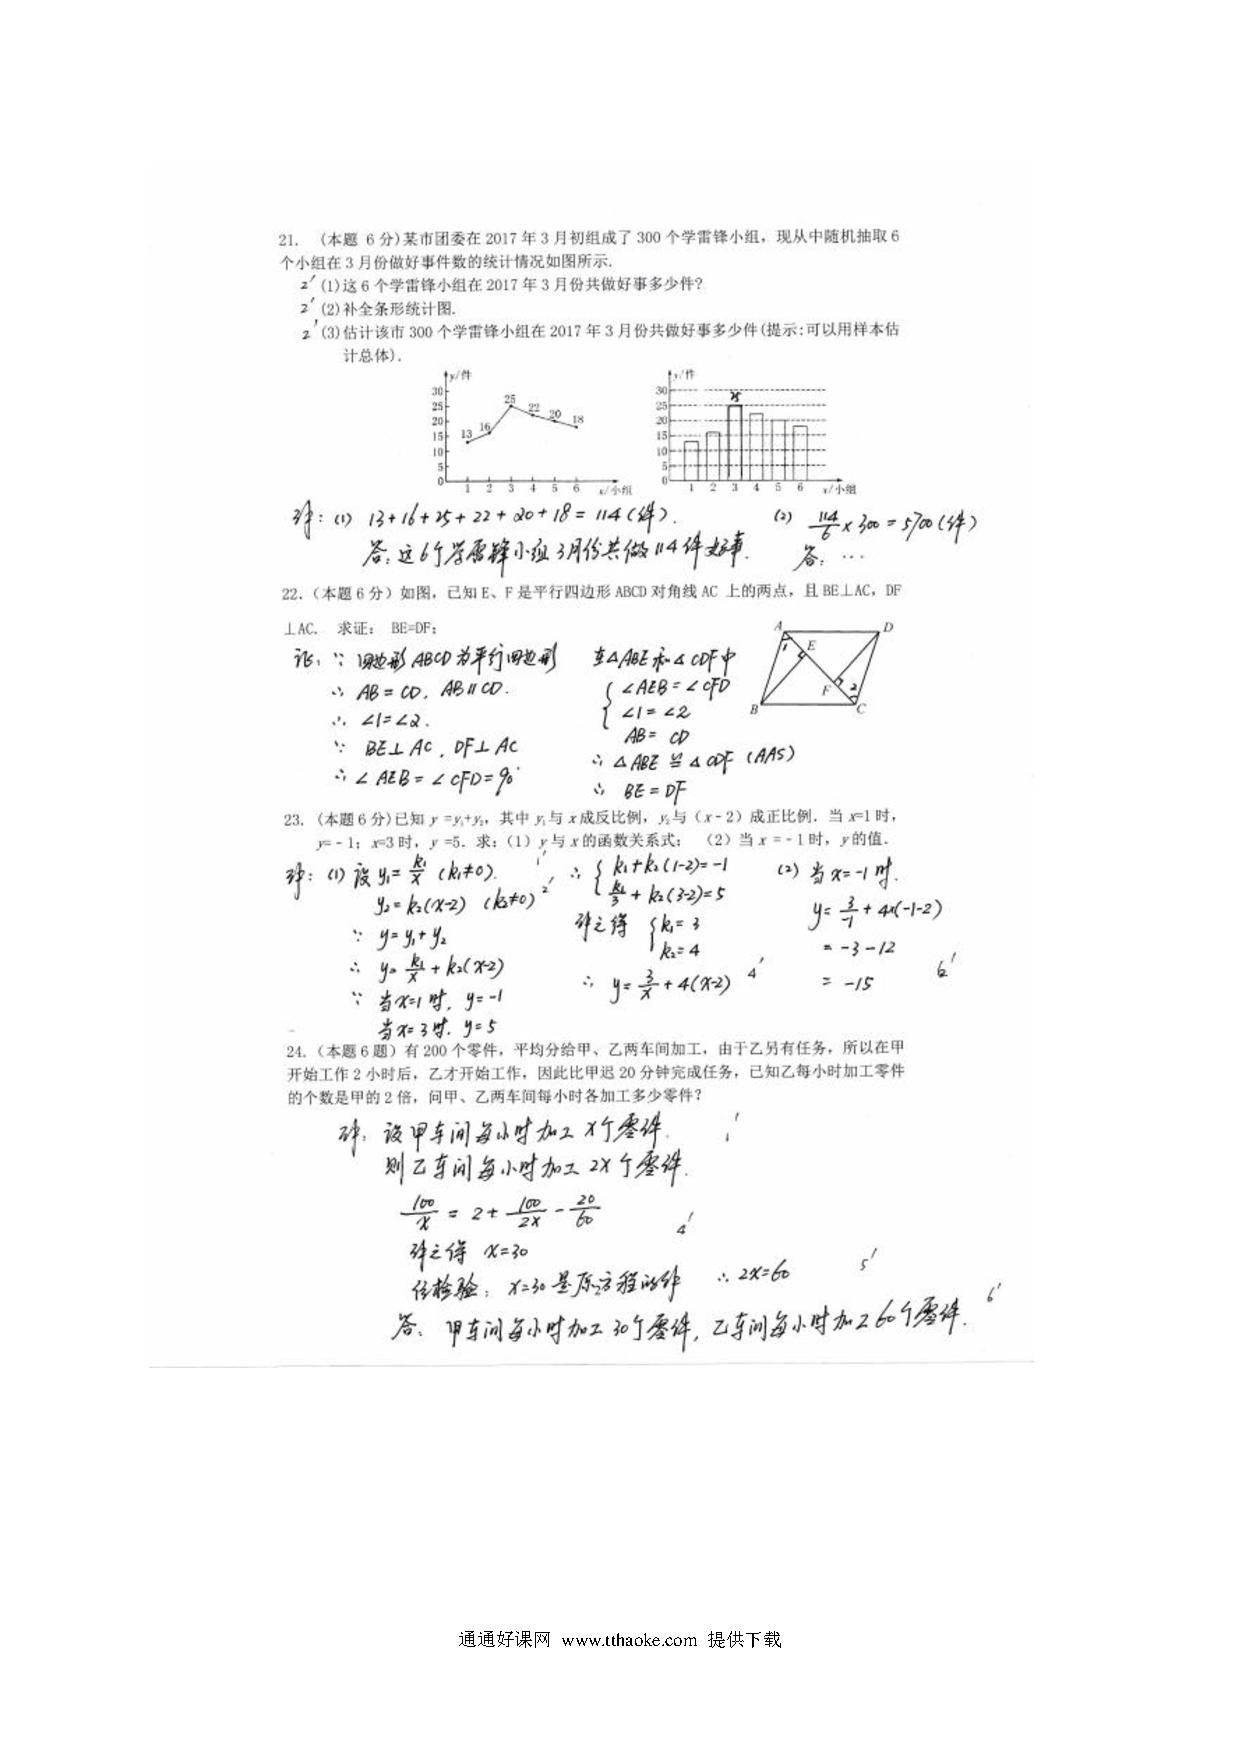 21. (本题 6分)某市团委在2017年3月初组成了300个学雷锋小组，现从中随机抽取6
个小组在3月份做好事件数的统计情况如图所示.
2′ (1)这6个学雷锋小组在2017年3月份共做好事多少件?
2′ (2)补全条形统计图.
2′ (3)估计该市300个学雷锋小组在2017年3月份共做好事多少件(提示:可以用样本估
计总体).
y/件
30
25
20
15
10
5
0
13 16 25 22 20 18
1 2 3 4 5 6 x/小组
y/件
30
25
20
15
10
5
0
25
1 2 3 4 5 6 x/小组
解：(1) 13+16+25+22+20+18=114(件).
答：这6个学雷锋小组3月份共做114件好事.
(2) 114/6×300=5700(件)
答：…
22.（本题6分）如图，已知E、F是平行四边形ABCD对角线AC 上的两点，且BE⊥AC，DF
⊥AC. 求证： BE=DF;
A D E F B C 1 2
证：∵ 四边形ABCD为平行四边形
∴ AB=CD, AB∥CD.
∴ ∠1=∠2.
∵ BE⊥AC, DF⊥AC
∴ ∠AEB=∠CFD=90°
在△ABE和△CDF中
{ ∠AEB=∠CFD
∠1=∠2
AB=CD
∴ △ABE≌△CDF (AAS)
∴ BE=DF
23.（本题6分)已知y=y₁+y₂，其中y₁与x成反比例，y₂与（x-2）成正比例. 当x=1时，
y=-1; x=3时，y=5. 求：(1）y与x的函数关系式； （2）当x=-1时，y的值.
解：(1) 设y₁=k₁/x (k₁≠0). 1′
y₂=k₂(x-2) (k₂≠0) 2′
∵ y=y₁+y₂
∴ y=k₁/x+k₂(x-2)
∵ 当x=1时, y=-1
当x=3时. y=5
∴ { k₁+k₂(1-2)=-1
k₁/3+k₂(3-2)=5
解之得 { k₁=3
k₂=4
∴ y=3/x+4(x-2) 4′
(2) 当x=-1时.
y=3/-1+4×(-1-2)
=-3-12
=-15 6′
24.（本题6题）有200个零件，平均分给甲、乙两车间加工，由于乙另有任务，所以在甲
开始工作2小时后，乙才开始工作，因此比甲迟20分钟完成任务，已知乙每小时加工零件
的个数是甲的2倍，问甲、乙两车间每小时各加工多少零件?
解：设甲车间每小时加工x个零件. 1′
则乙车间每小时加工2x个零件.
100/x=2+100/2x-20/60 4′
解之得 x=30
经检验：x=30是原方程的解 ∴ 2x=60 5′
答：甲车间每小时加工30个零件, 乙车间每小时加工60个零件. 6′
通通好课网 www.tthaoke.com 提供下载